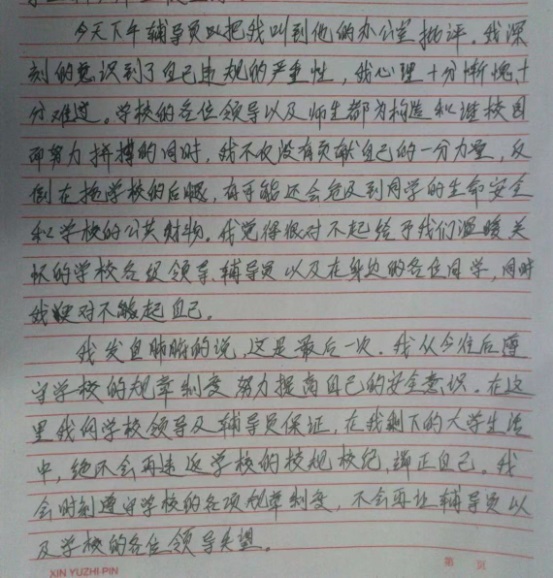 今天下午辅导员又把我叫到他的办公室批评。我深
刻的意识到了自己违规的严重性，我心理十分惭愧，十
分难过。学校的各位领导以及师生都为构造和谐校园
而努力拼搏的同时，我不仅没有贡献自己的一分力量，反
倒在拖学校的后腿，有可能还会危及到同学的生命安全
和学校的公共财物。我觉得很对不起给予我们温暖关
怀的学校各级领导、辅导员以及在身边的各位同学，同时
我更对不起自己。
我发自肺腑的说，这是最后一次。我从今往后遵
守学校的规章制度，努力提高自己的安全意识。在这
里我向学校领导及辅导员保证，在我剩下的大学生活
中，绝不会再违反学校的校规校纪，端正自己。我
会时刻遵守学校的各项规章制度，不会再让辅导员以
及学校的各位领导失望。
XIN YUZHI PIN 第 页